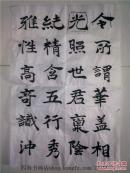 所謂華盖相
光照世君稟陰
統精含五行秀
雅性高奇識沖